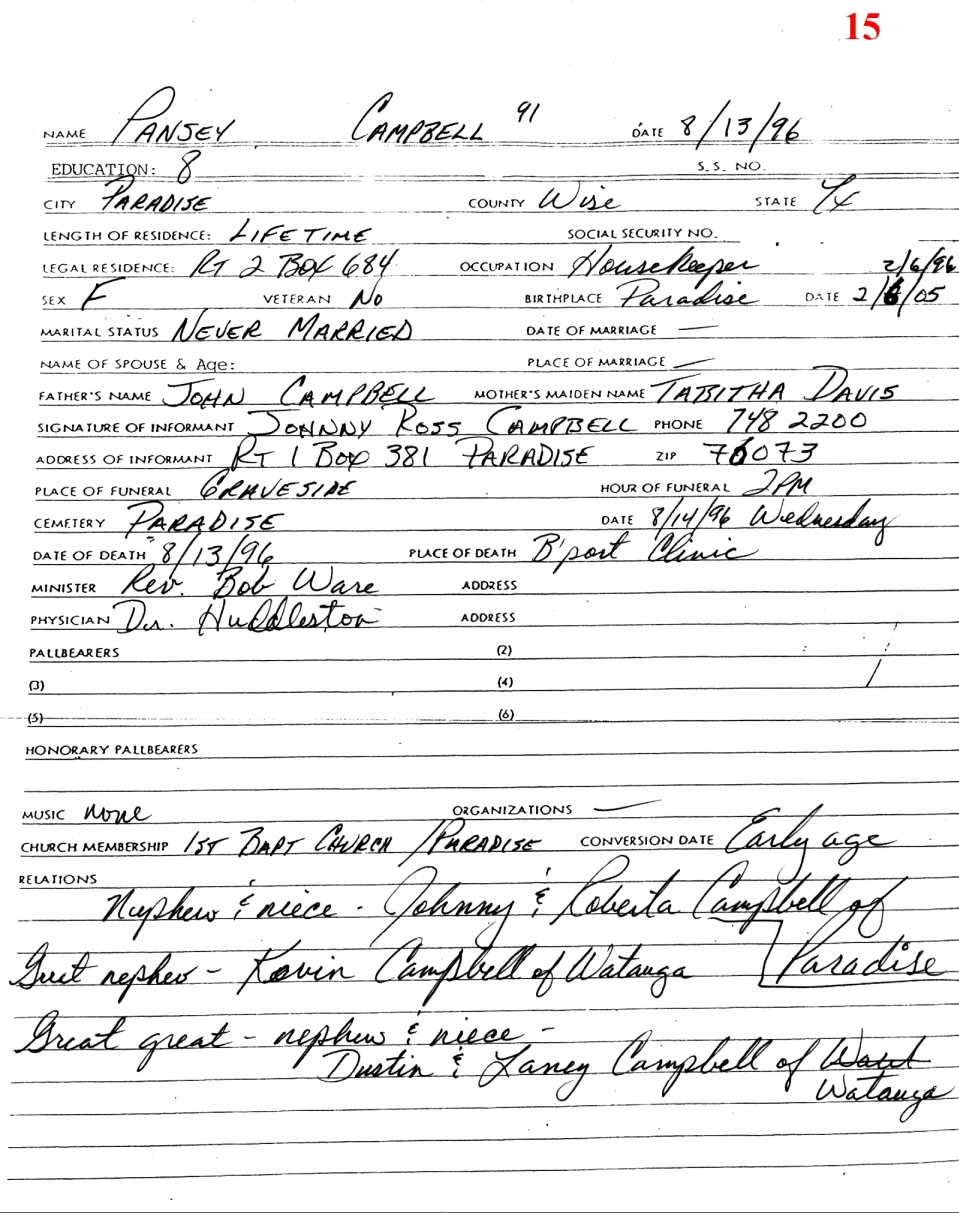 15
NAME PANSEY CAMPBELL 91 DATE 8/13/96
EDUCATION: 8 S.S. NO.
CITY PARADISE COUNTY Wise STATE TX
LENGTH OF RESIDENCE: LIFETIME SOCIAL SECURITY NO.
LEGAL RESIDENCE: RT 2 BOX 684 OCCUPATION Housekeeper 2/6/96
SEX F VETERAN No BIRTHPLACE Paradise DATE 2/6/05
MARITAL STATUS NEVER MARRIED DATE OF MARRIAGE —
NAME OF SPOUSE & Age: PLACE OF MARRIAGE —
FATHER'S NAME JOHN CAMPBELL MOTHER'S MAIDEN NAME TABITHA DAVIS
SIGNATURE OF INFORMANT JOHNNY ROSS CAMPBELL PHONE 748 2200
ADDRESS OF INFORMANT RT 1 BOX 381 PARADISE ZIP 76073
PLACE OF FUNERAL GRAVESIDE HOUR OF FUNERAL 2PM
CEMETERY PARADISE DATE 8/14/96 Wednesday
DATE OF DEATH 8/13/96 PLACE OF DEATH B'port Clinic
MINISTER Rev. Bob Ware ADDRESS
PHYSICIAN Dr. Huddleston ADDRESS
PALLBEARERS (2)
(3) (4)
(5) (6)
HONORARY PALLBEARERS
MUSIC none ORGANIZATIONS —
CHURCH MEMBERSHIP 1ST BAPT CHURCH / PARADISE CONVERSION DATE Early age
RELATIONS
Nephew & niece - Johnny & Roberta Campbell of
Great nephew - Kevin Campbell of Watauga Paradise
Great great - nephew & niece -
Dustin & Laney Campbell of
Watauga